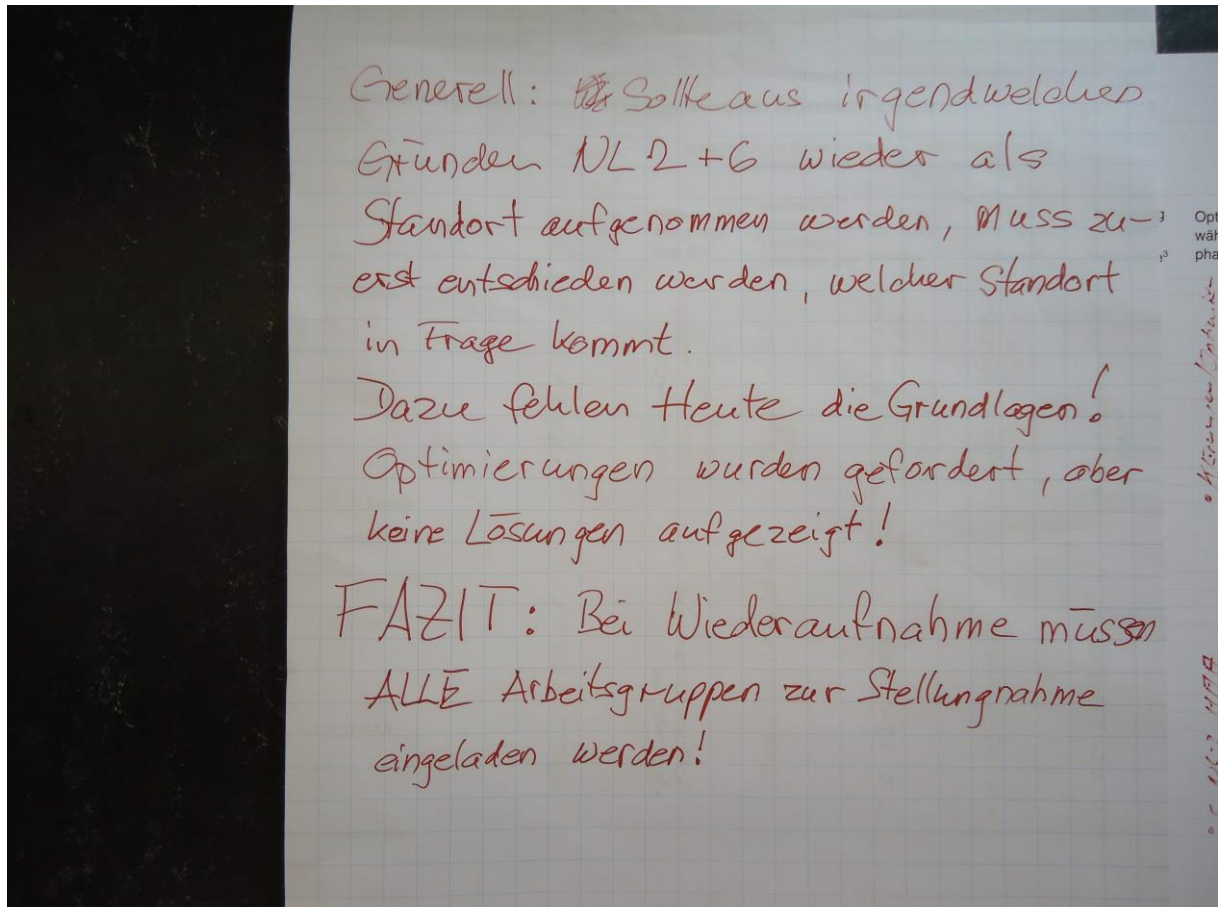 Generell: Sollte aus irgendwelchen
Gründen NL 2 + 6 wieder als
Standort aufgenommen werden, muss zu-
erst entschieden werden, welcher Standort
in Frage kommt.
Dazu fehlen Heute die Grundlagen!
Optimierungen wurden gefordert, aber
keine Lösungen aufgezeigt!
FAZIT: Bei Wiederaufnahme müssen
ALLE Arbeitsgruppen zur Stellungnahme
eingeladen werden!
Opt
wäh
pha